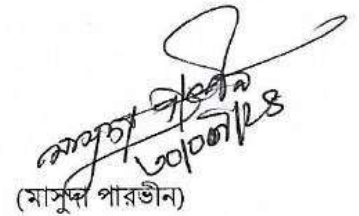 মাসুদা পারভীন
৩০/০৬/২৪
(মাসুদা পারভীন)